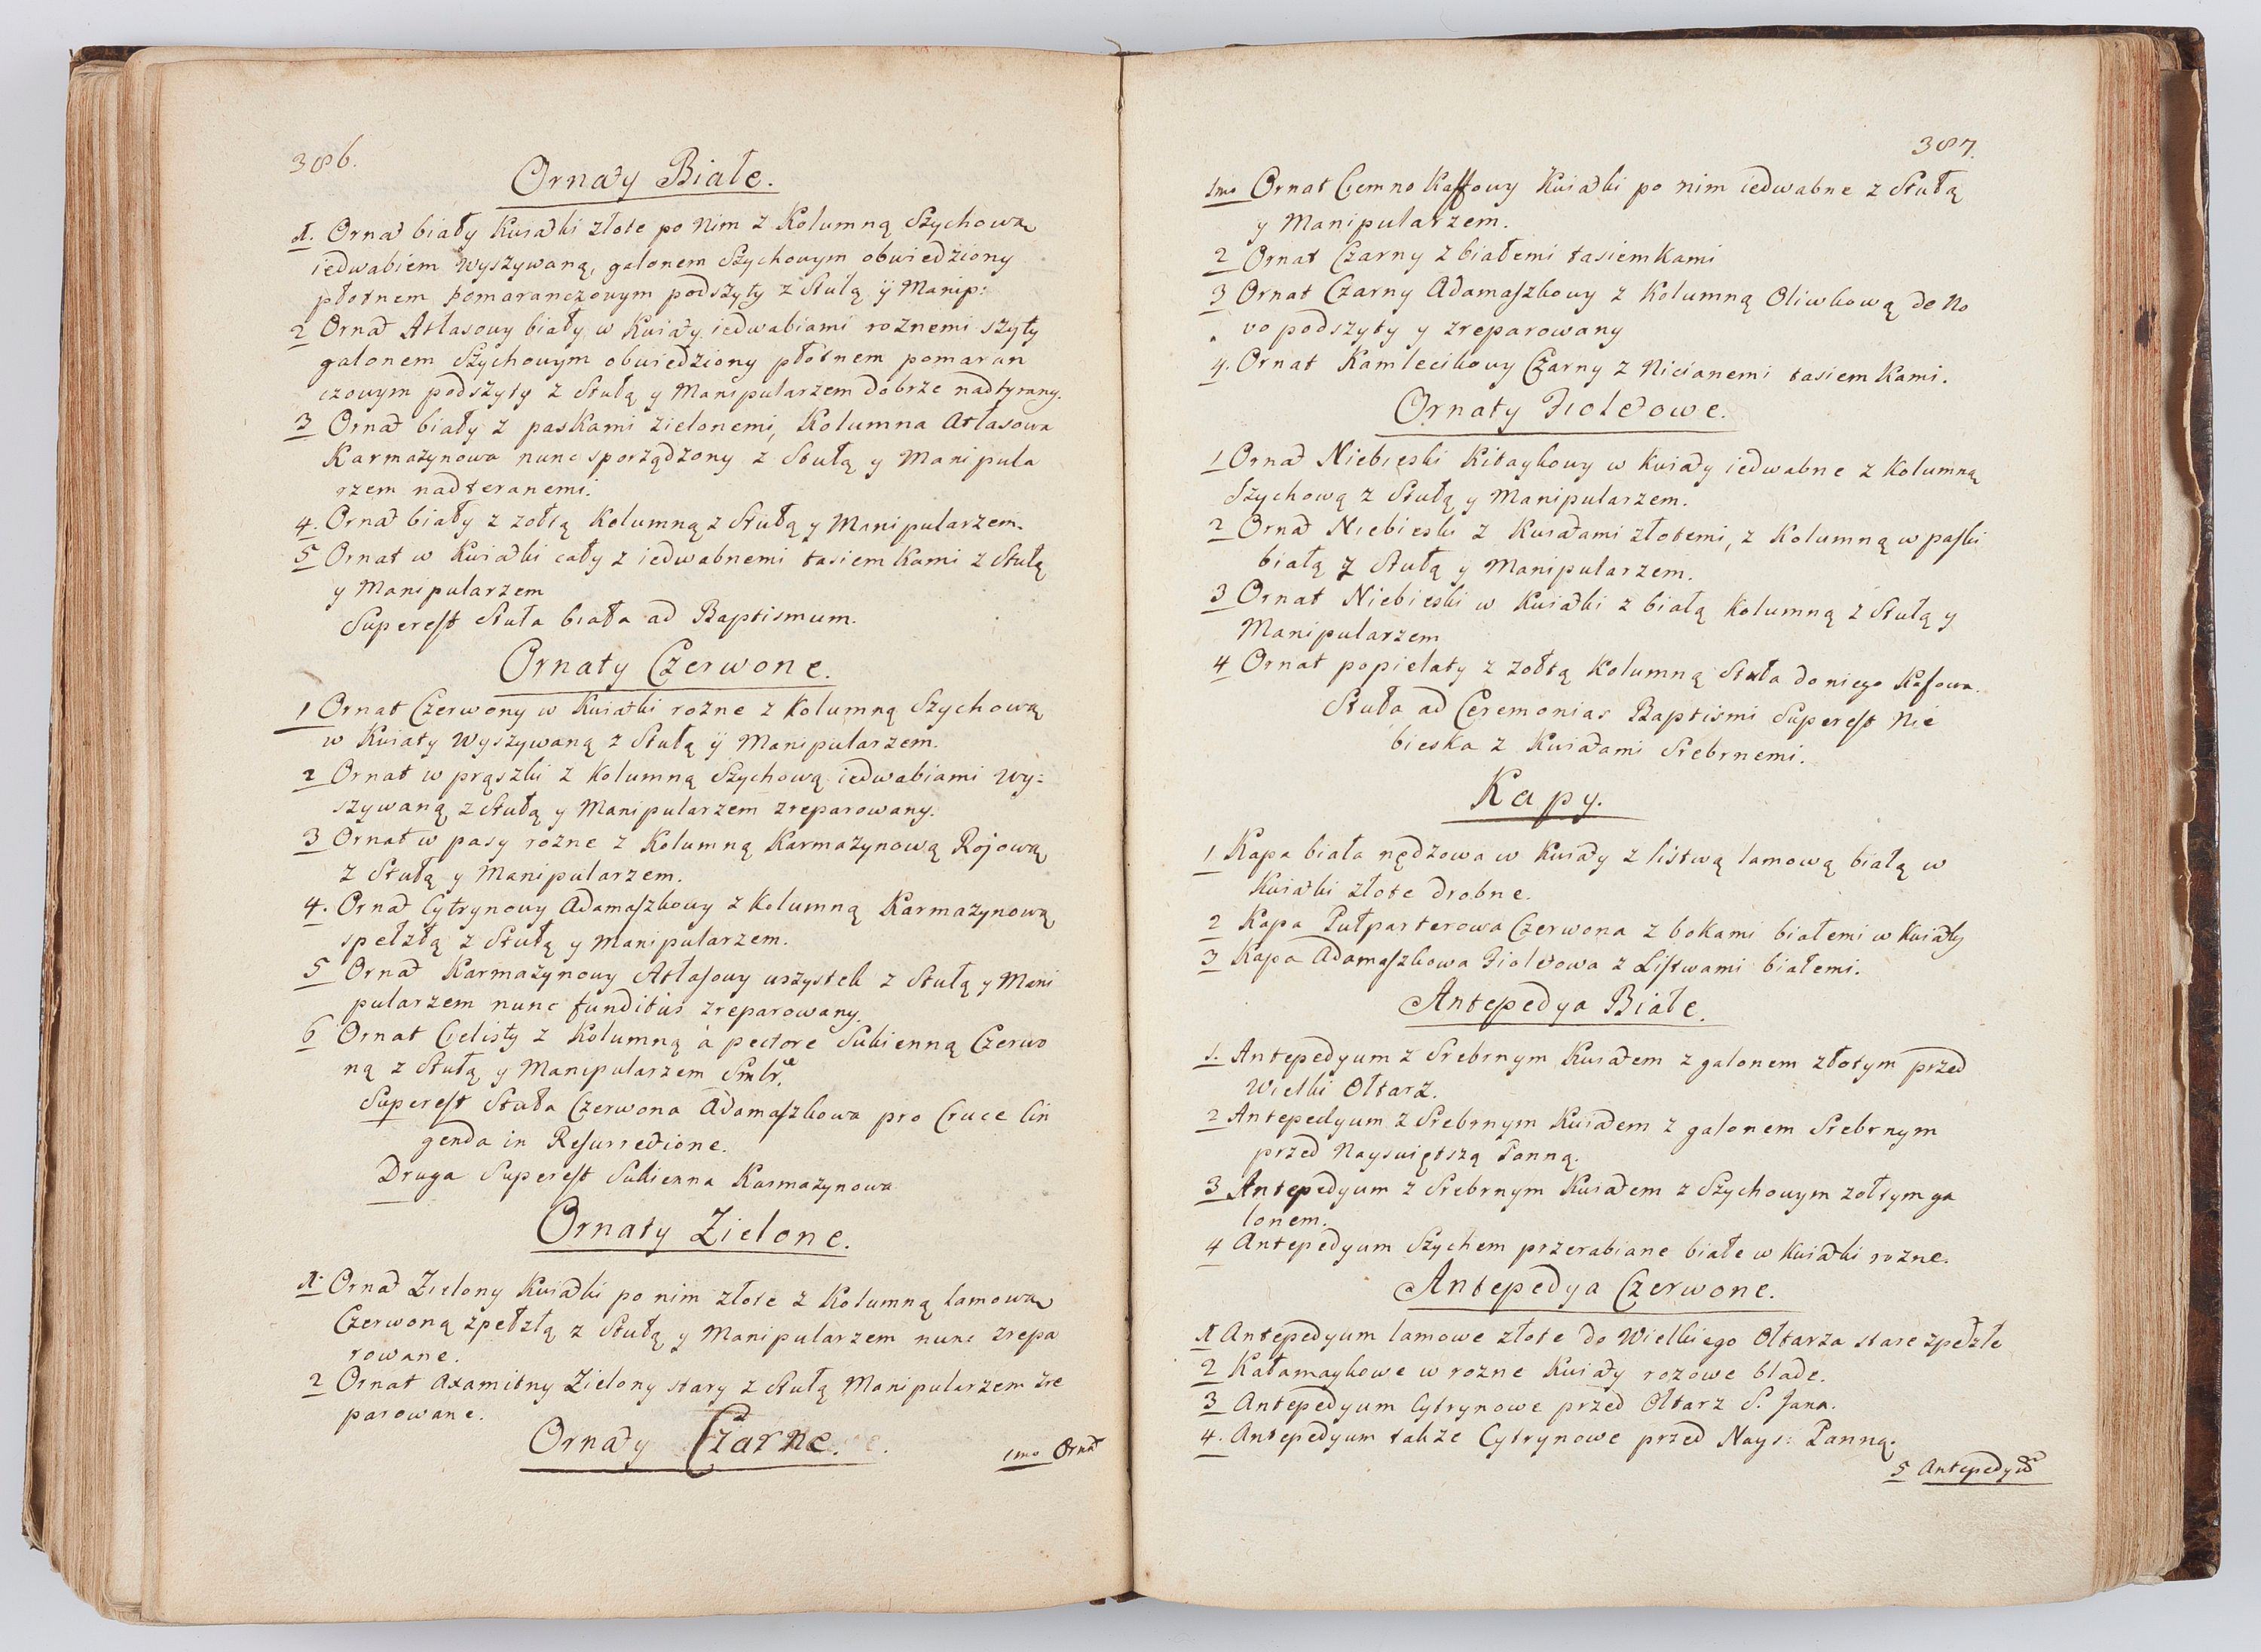 386.
Ornaty Białe.
1. Ornat biały Kwiatki złote po Nim z Kolumną Szychową
iedwabiem wyszywaną, galonem Szychowym obwiedziony
płotnem pomaranczowym podszyty z Stułą ÿ Manip:
2 Ornat Atłasowy biały w Kwiaty iedwabiami roznemi szyty
galonem Szychowym obwiedziony płótnem pomaran
czowym podszyty z Stułą y Manipularzem dobrze nadtyrany.
3 Ornat biały z paskami zielonemi, Kolumna Atłasowa
Karmazynowa nunc sporządzony z Stułą y Manipula
rzem nadteranemi.
4. Ornat biały z zołtą Kolumną z Stułą y Manipularzem.
5 Ornat w Kwiatki cały z iedwabnemi tasiemkami z Stułą
y Manipularzem
Superest Stuła biała ad Baptismum.
Ornaty Czerwone.
1 Ornat Czerwony w Kwiatki rozne z Kolumną Szychową
w Kwiaty Wyszywaną z Stułą ÿ Manipularzem.
2 Ornat w prąszki z Kolumną Szychową iedwabiami wy=
szywaną z Stułą y Manipularzem zreparowany.
3 Ornat w pasy rozne z Kolumną Karmazynową Rojową
z Stułą y Manipularzem.
4. Ornat Cytrynowy Adamaszkowy z Kolumną Karmazynową
spełzłą z Stułą y Manipularzem.
5 Ornat Karmazynowy Atłasowy wszystek z Stułą y Mani
pularzem nunc funditus zreparowany.
6 Ornat Cielisty z Kolumną à pectore Sukienną Czerwo
ną z Stułą y Manipularzem
Superest Stuła Czerwona Adamaszkowa pro Cruce lin
genda in Resurrectione.
Druga Superest Sukienna Karmazynowa
Ornaty Zielone.
1. Ornat Zielony Kwiatki po nim złote z Kolumną lamową
Czerwoną zpełzłą z Stułą y Manipularzem nunc zrepa
rowane.
2 Ornat Axamitny Zielony stary z Stułą Manipularzem zre
parowane.
Ornaty Czarne.
1mo Ornat
387.
1mo Ornat Ciemno Kaffowy Kwiatki po nim iedwabne z Stułą
y Manipularzem.
2 Ornat Czarny z białemi tasiemkami
3 Ornat Czarny Adamaszkowy z Kolumną Oliwkową de No
vo podszyty y zreparowany
4. Ornat Kamlecikowy Czarny z Nicianemi tasiemkami.
Ornaty Fioletowe.
1 Ornat Niebieski Kitaykowy w kwiaty iedwabne z Kolumną
Szychową z Stułą y Manipularzem.
2 Ornat Niebieski z Kwiatami złotemi, z Kolumną w paski
białą z Stułą y Manipularzem.
3 Ornat Niebieski w Kwiatki z białą Kolumną z Stułą y
Manipularzem
4 Ornat popielaty z zołtą Kolumną Stuła do niego Kafowa.
Stuła ad Ceremonias Baptismi Superest Nie
bieska z Kwiatami Srebrnemi.
Kapy.
1 Kapa biała nędzowa w Kwiaty z listwą lamową białą w
Kwiatki złote drobne.
2 Kapa Pułparterowa Czerwona z bokami białemi w Kwiaty
3 Kapa Adamaszkowa Fioletowa z Listwami białemi.
Antepedya Białe.
1. Antepedyum z Srebrnym Kwiatem z galonem złotym przed
Wielki Ołtarz.
2 Antepedyum z Srebrnym Kwiatem z galonem Srebrnym
przed Nayswiętszą Panną.
3 Antepedyum z Srebrnym Kwiatem z Szychowym zołtym ga
lonem.
4 Antepedyum Szychem przerabiane białe w Kwiatki rozne.
Antepedya Czerwone.
1 Antepedyum lamowe złote do Wielkiego Ołtarza stare zpełzłe
2 Kałamaykowe w rozne Kwiaty rozowe blade.
3 Antepedyum Cytrynowe przed Ołtarz S. Jana.
4. Antepedyum takze Cytrynowe przed Nays: Panną.
5 Antepedyum